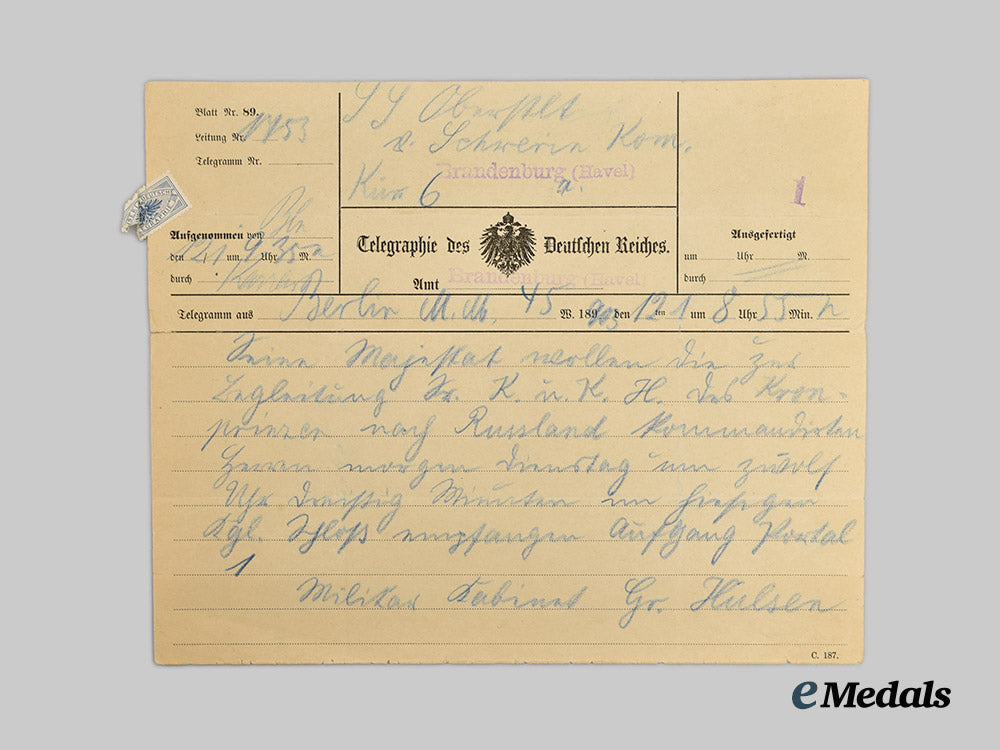 Blatt Nr. 89.
Leitung Nr. 1453
Telegramm Nr.
SS Oberstlt
v. Schwerin Kom.
Brandenburg (Havel)
Kür 6
1
Aufgenommen von
den 12/1 um 9 Uhr 35 M.
durch
Telegraphie des Deutschen Reiches.
Amt Brandenburg (Havel)
Ausgefertigt
um Uhr M.
durch
Telegramm aus Berlin M.M. 45 W. 189 903 den 12ten 1 um 8 Uhr 55 Min. n
Seine Majestat wollen die zur
Begleitung Sr. K. u. K. H. des Kron-
prinzen nach Russland kommandirten
Herrn morgen Dienstag um zwölf
Uhr dreißig Minuten im hiesigen
Kgl. Schloß empfangen Aufgang Portal
1
Militar Kabinet Gr. Hulsen
C. 187.
DEUTSCHE
eMedals